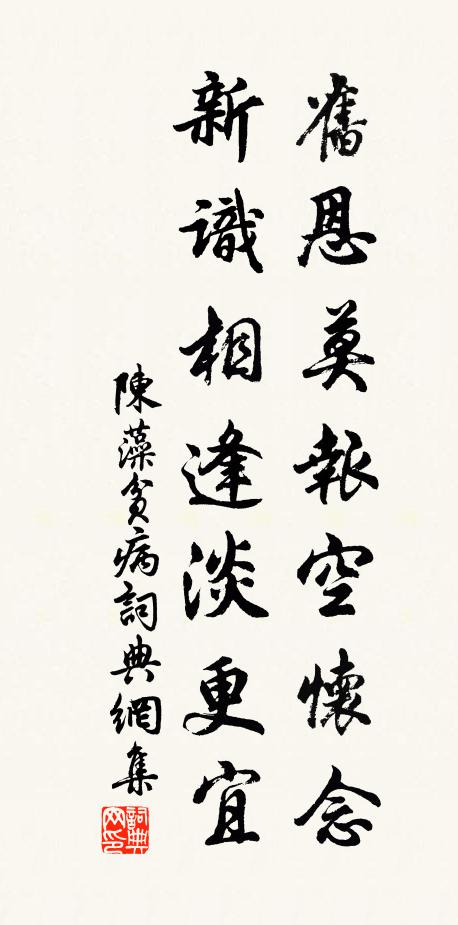 舊恩莫報空懷念
新識相逢淡更宜
陳藻貧病詞典網集
詞典网印